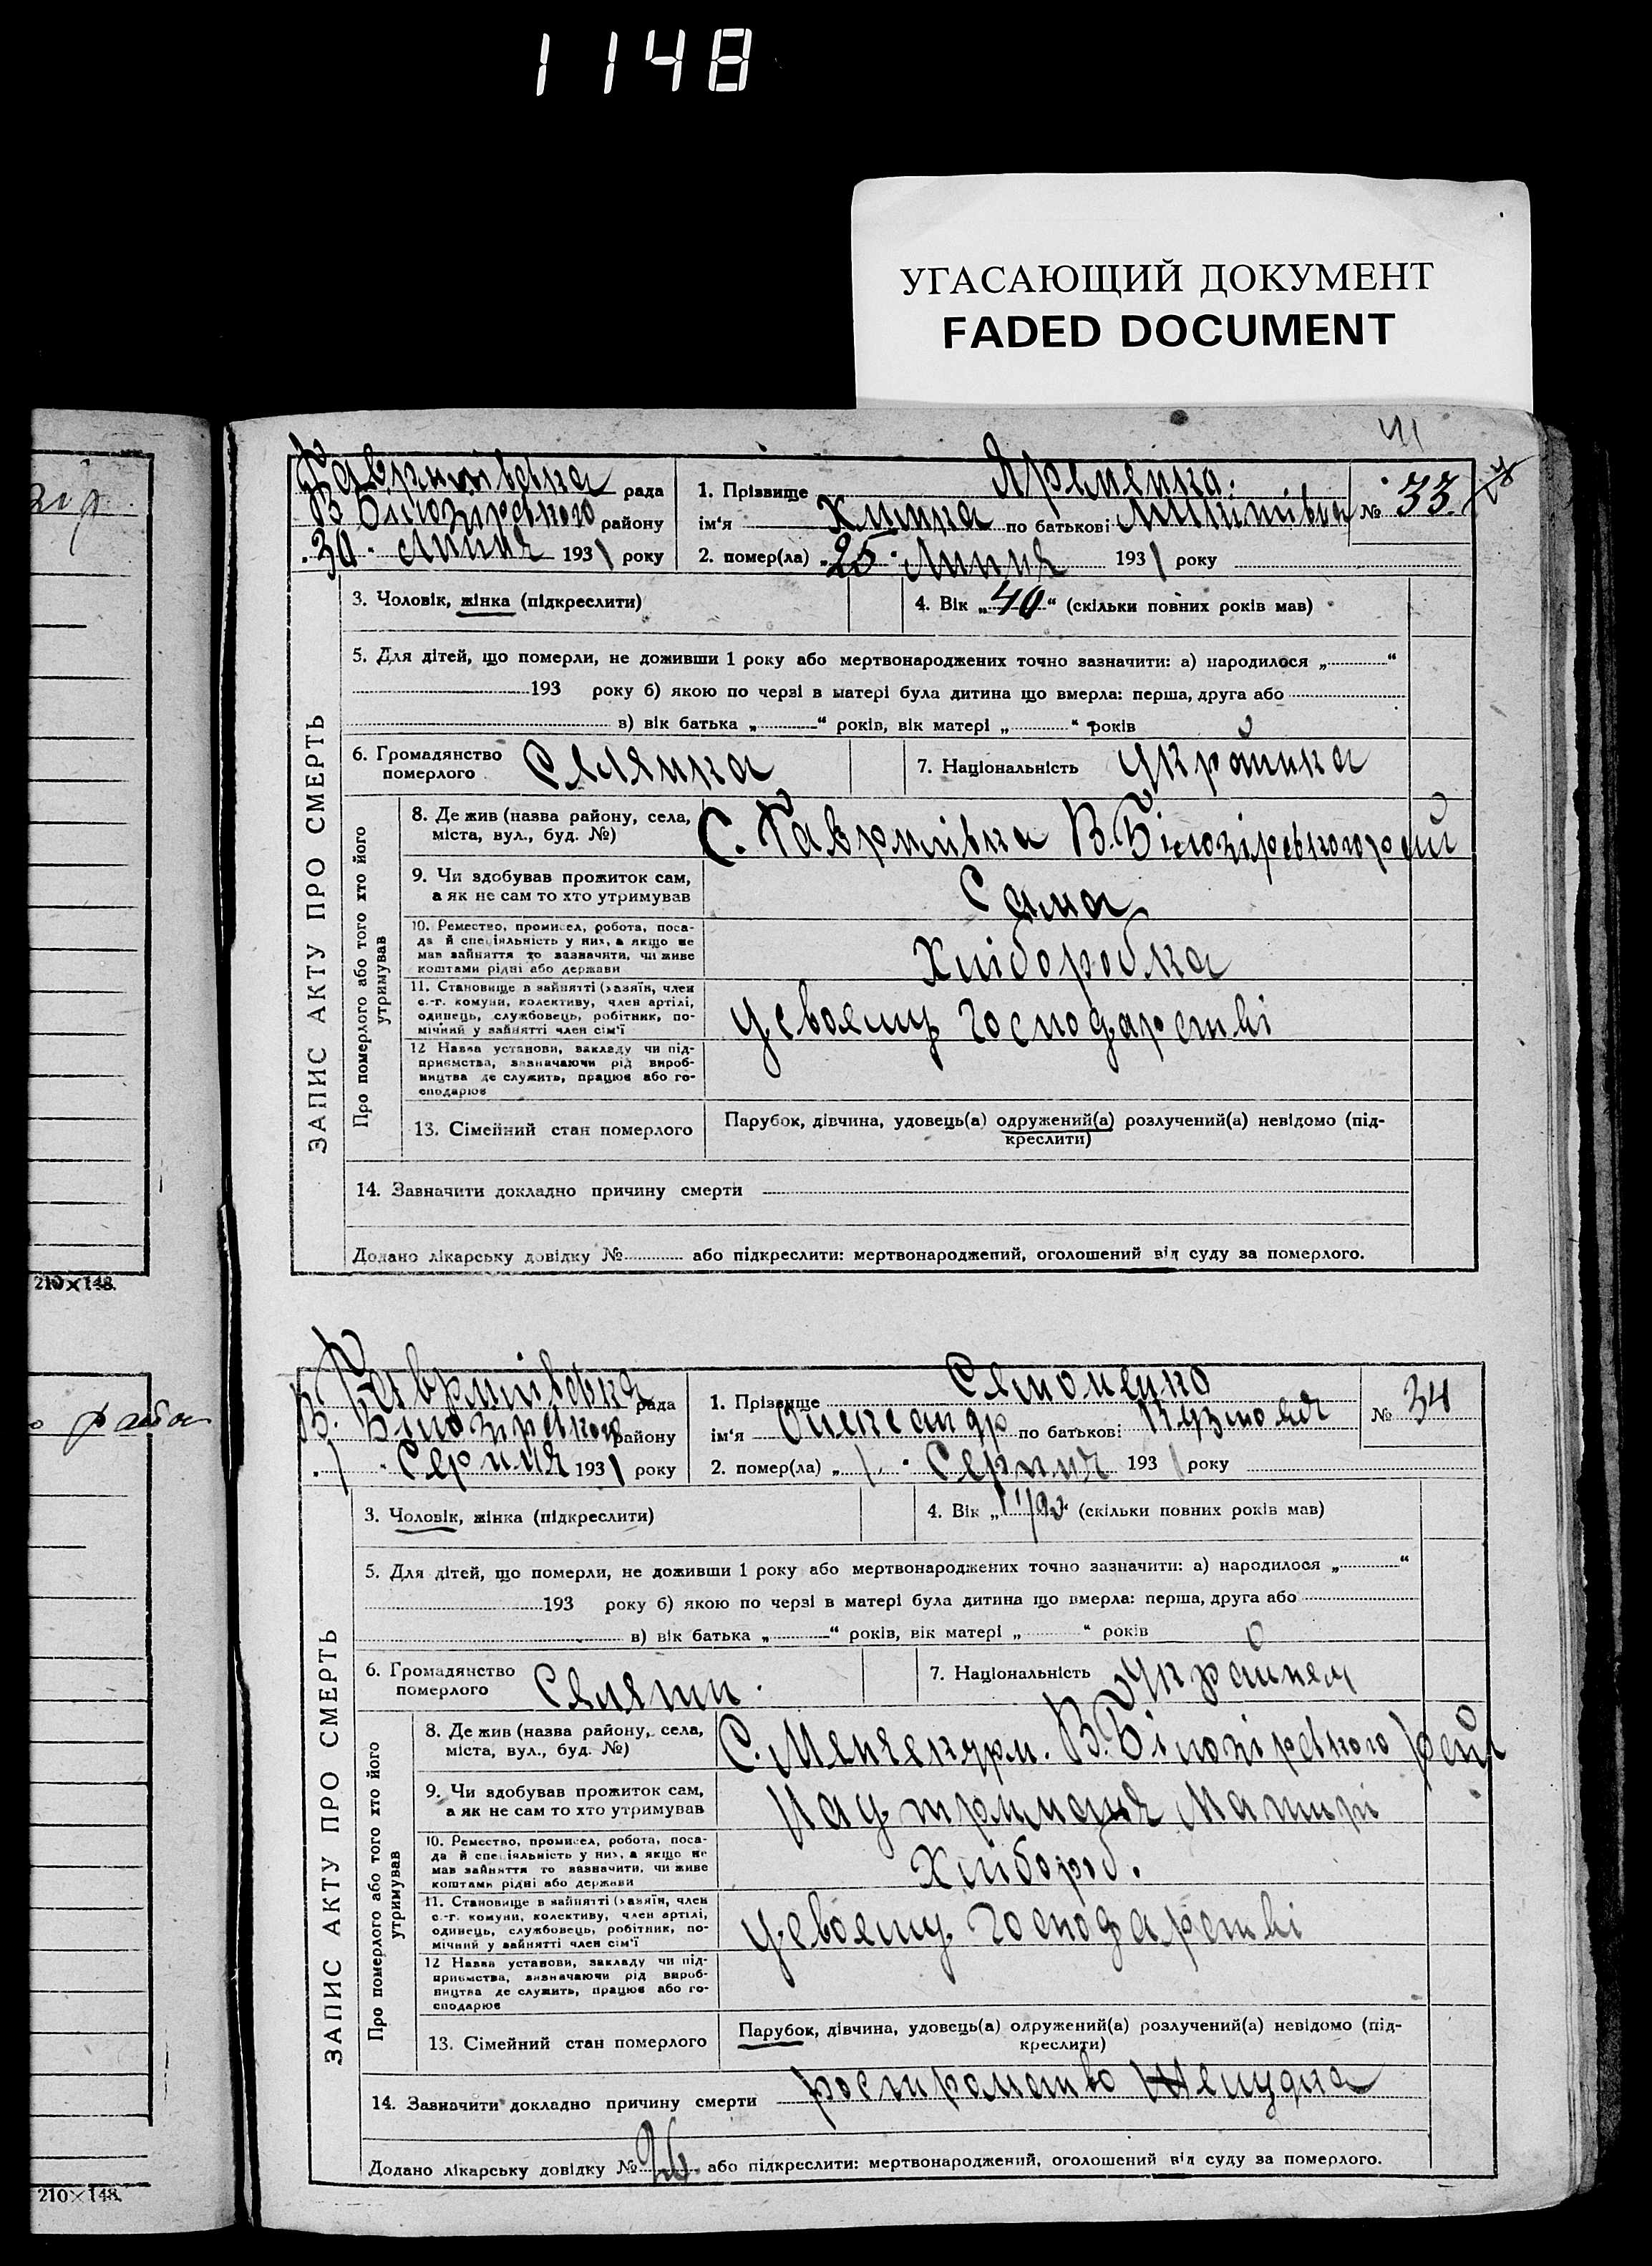 1148
УГАСАЮЩИЙ ДОКУМЕНТ
FADED DOCUMENT
41
Гаврилівка рада
В Білозірського району
"30" Липня 1931 року
1. Прізвище Яременко.
ім'я по батькові
2. помер(ла) "25" Липня 1931 року
№ 33
3. Чоловік, жінка (підкреслити)
4. Вік „40“ (скільки повних років мав)
5. Для дітей, що померли, не доживши 1 року або мертвонароджених точно зазначити: а) народилося „ “
193 року б) якою по черзі в матері була дитина що вмерла: перша, друга або
в) вік батька „ “ років, вік матері „ “ років
6. Громадянство померлого Селянка
7. Національність Українка
ЗАПИС АКТУ ПРО СМЕРТЬ
Про померлого або того хто його утримував
8. Де жив (назва району, села,
міста, вул., буд. №)
С. Гаврилівка В. Білозірського рай
9. Чи здобував прожиток сам,
а як не сам то хто утримував
Сама
10. Ремество, промисел, робота, поса-
да й спеціяльність у них, а якщо не
мав зайняття то зазначити, чи живе
коштами рідні або держави
Хліборобка
11. Становище в зайнятті (хазяїн, член
с.-г. комуни, колективу, член артілі,
одинець, службовець, робітник, по-
мічний у зайнятті член сім'ї
у своєму господарстві
12 Назва установи, закладу чи під-
приємства, зазначаючи рід вироб-
ництва де служить, працює або го-
сподарює
13. Сімейний стан померлого
Парубок, дівчина, удовець(а) одружений(а) розлучений(а) невідомо (під-
креслити)
14. Зазначити докладно причину смерти
Додано лікарську довідку № або підкреслити: мертвонароджений, оголошений від суду за померлого.
210×148.
Гаврилівка рада
В. Білозірського району
"1" Серпня 1931 року
1. Прізвище Семоненко
ім'я Олександр по батькові Кузьмович
2. помер(ла) „1" Серпня 1931 року
№ 34
3. Чоловік, жінка (підкреслити)
4. Вік „ (скільки повних років мав)
5. Для дітей, що померли, не доживши 1 року або мертвонароджених точно зазначити: а) народилося „ “
193 року б) якою по черзі в матері була дитина що вмерла: перша, друга або
в) вік батька „ “ років, вік матері „ “ років
6. Громадянство померлого Селянин.
7. Національність Українец
ЗАПИС АКТУ ПРО СМЕРТЬ
Про померлого або того хто його утримував
8. Де жив (назва району, села,
міста, вул., буд. №)
С. Менчекурм. В. Білозірського рай
9. Чи здобував прожиток сам,
а як не сам то хто утримував
На утриманя Матирі
10. Ремество, промисел, робота, поса-
да й спеціяльність у них, а якщо не
мав зайняття то зазначити, чи живе
коштами рідні або держави
Хлібороб.
11. Становище в зайнятті (хазяїн, член
с.-г. комуни, колективу, член артілі,
одинець, службовець, робітник, по-
мічний у зайнятті член сім'ї
у своєму господарстві
12 Назва установи, закладу чи під-
приємства, зазначаючи рід вироб-
ництва де служить, працює або го-
сподарює
13. Сімейний стан померлого
Парубок, дівчина, удовець(а) одружений(а) розлучений(а) невідомо (під-
креслити)
14. Зазначити докладно причину смерти
Додано лікарську довідку № 26 або підкреслити: мертвонароджений, оголошений від суду за померлого.
210×148.